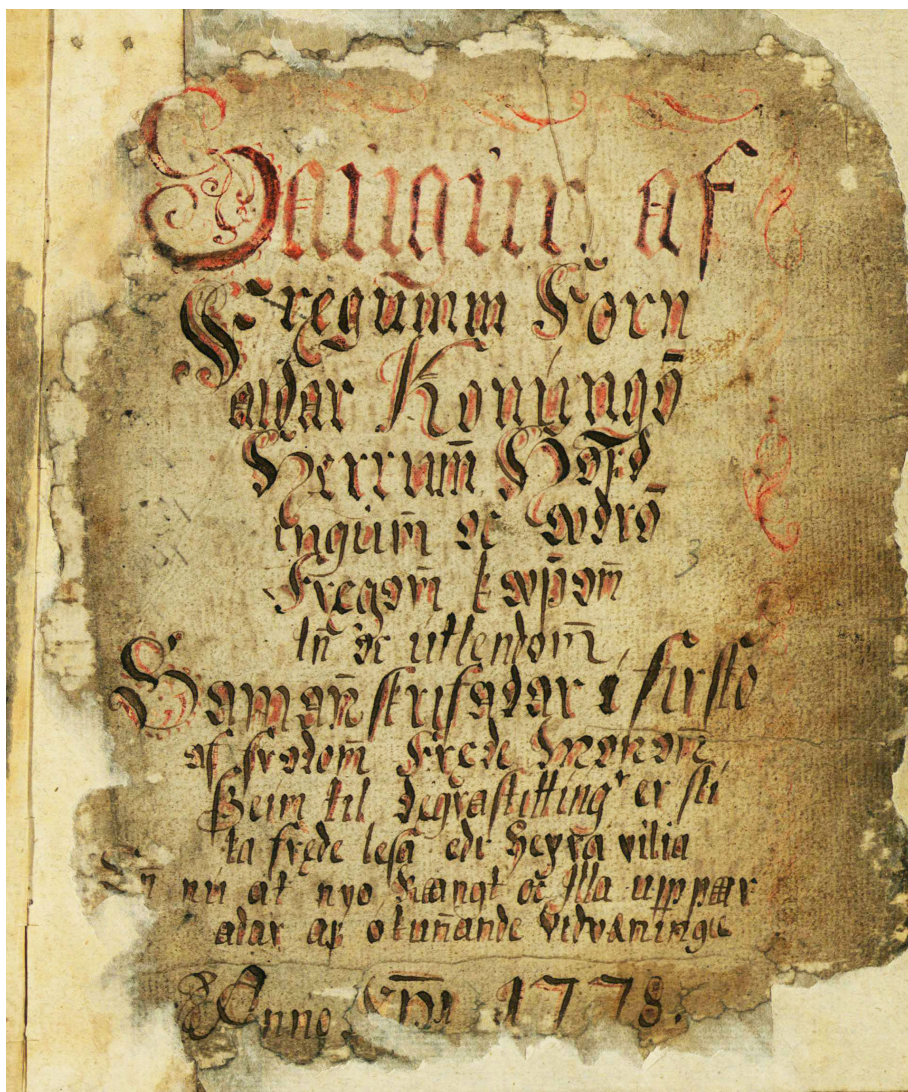 Saugur af
Frægum̄m Forn
aldar Konungō
Herrum̄ Höfd
ingum̄ oc ödrō
Frægom̄ köpom̄
In̄ oc utlendom̄
Saman̄ skrifadar i firstō
af frodom̄ Fræde Monom̄
Þeim til Degrastitting er sli
ka fræde lesa edr Heyra vilia
En̄ nu at nyo, Rangt oc Illa upp par
adar af okun̄ande Vidvæninge
Anno. Dn̄i 1778.